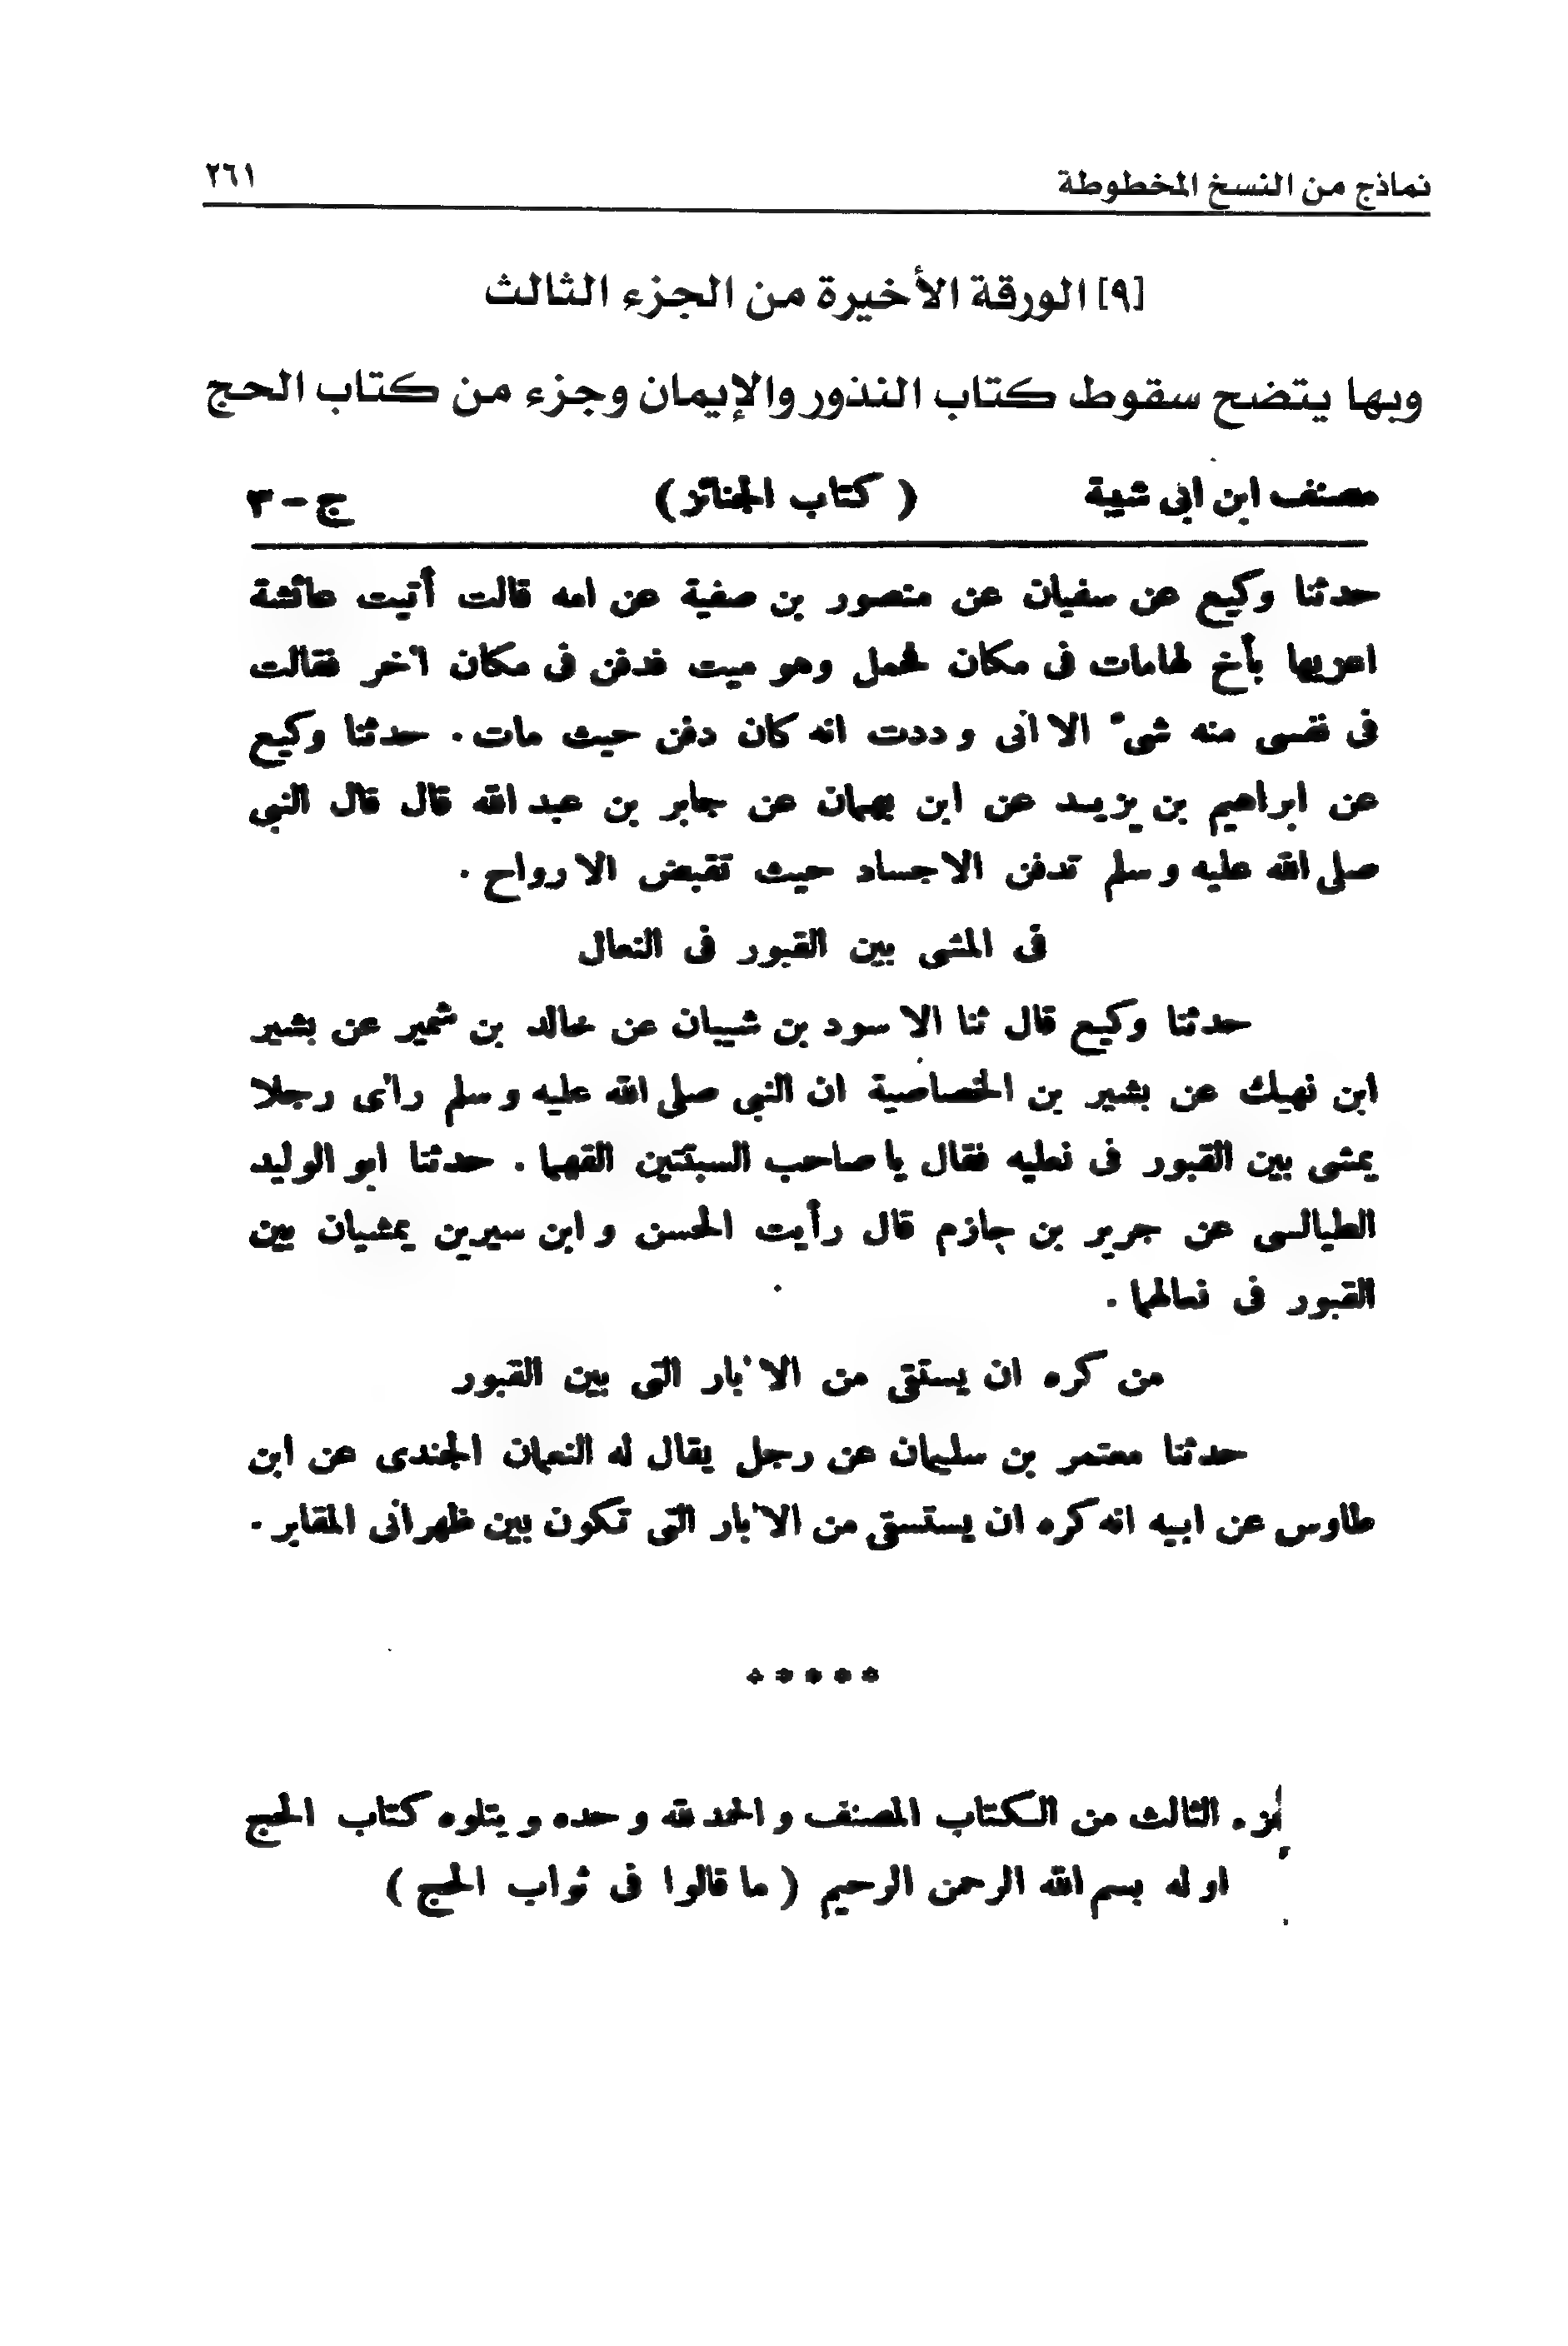 نماذج من النسخ المخطوطة ٢٦١
[٩] الورقة الأخيرة من الجزء الثالث
وبها يتضح سقوط كتاب النذور والإيمان وجزء من كتاب الحج
مصنف ابن ابى شيبة ( كتاب الجنائز ) ج - ٣
حدثنا وكيع عن سفيان عن منصور بن صفية عن امه قالت أتيت عائشة
اعزيها بأخ لها مات فى مكان فحمل وهو ميت فدفن فى مكان آخر فقالت
فى نفسى منه شىء الا انى وددت انه كان دفن حيث مات . حدثنا وكيع
عن ابراهيم بن يزيد عن ابن بهمان عن جابر بن عبد الله قال قال النبى
صلى الله عليه وسلم تدفن الاجساد حيث تقبض الارواح .
فى المشى بين القبور فى النعال
حدثنا وكيع قال ثنا الاسود بن شيبان عن خالد بن شمير عن بشير
ابن نهيك عن بشير بن الخصاصية ان النبى صلى الله عليه وسلم رأى رجلا
يمشى بين القبور فى نعليه فقال يا صاحب السبتتين القهما . حدثنا ابو الوليد
الطيالسى عن جرير بن جازم قال رأيت الحسن وابن سيرين يمشيان بين
القبور فى نعالهما .
من كره ان يستقى من الآبار التى بين القبور
حدثنا معتمر بن سليمان عن رجل يقال له النعمان الجندى عن ابن
طاوس عن ابيه انه كره ان يستسقى من الآبار التى تكون بين ظهرانى المقابر .
*****
الثالث من الكتاب المصنف والحمد لله وحده ويتلوه كتاب الحج
اوله بسم الله الرحمن الرحيم ( ما قالوا فى ثواب الحج )